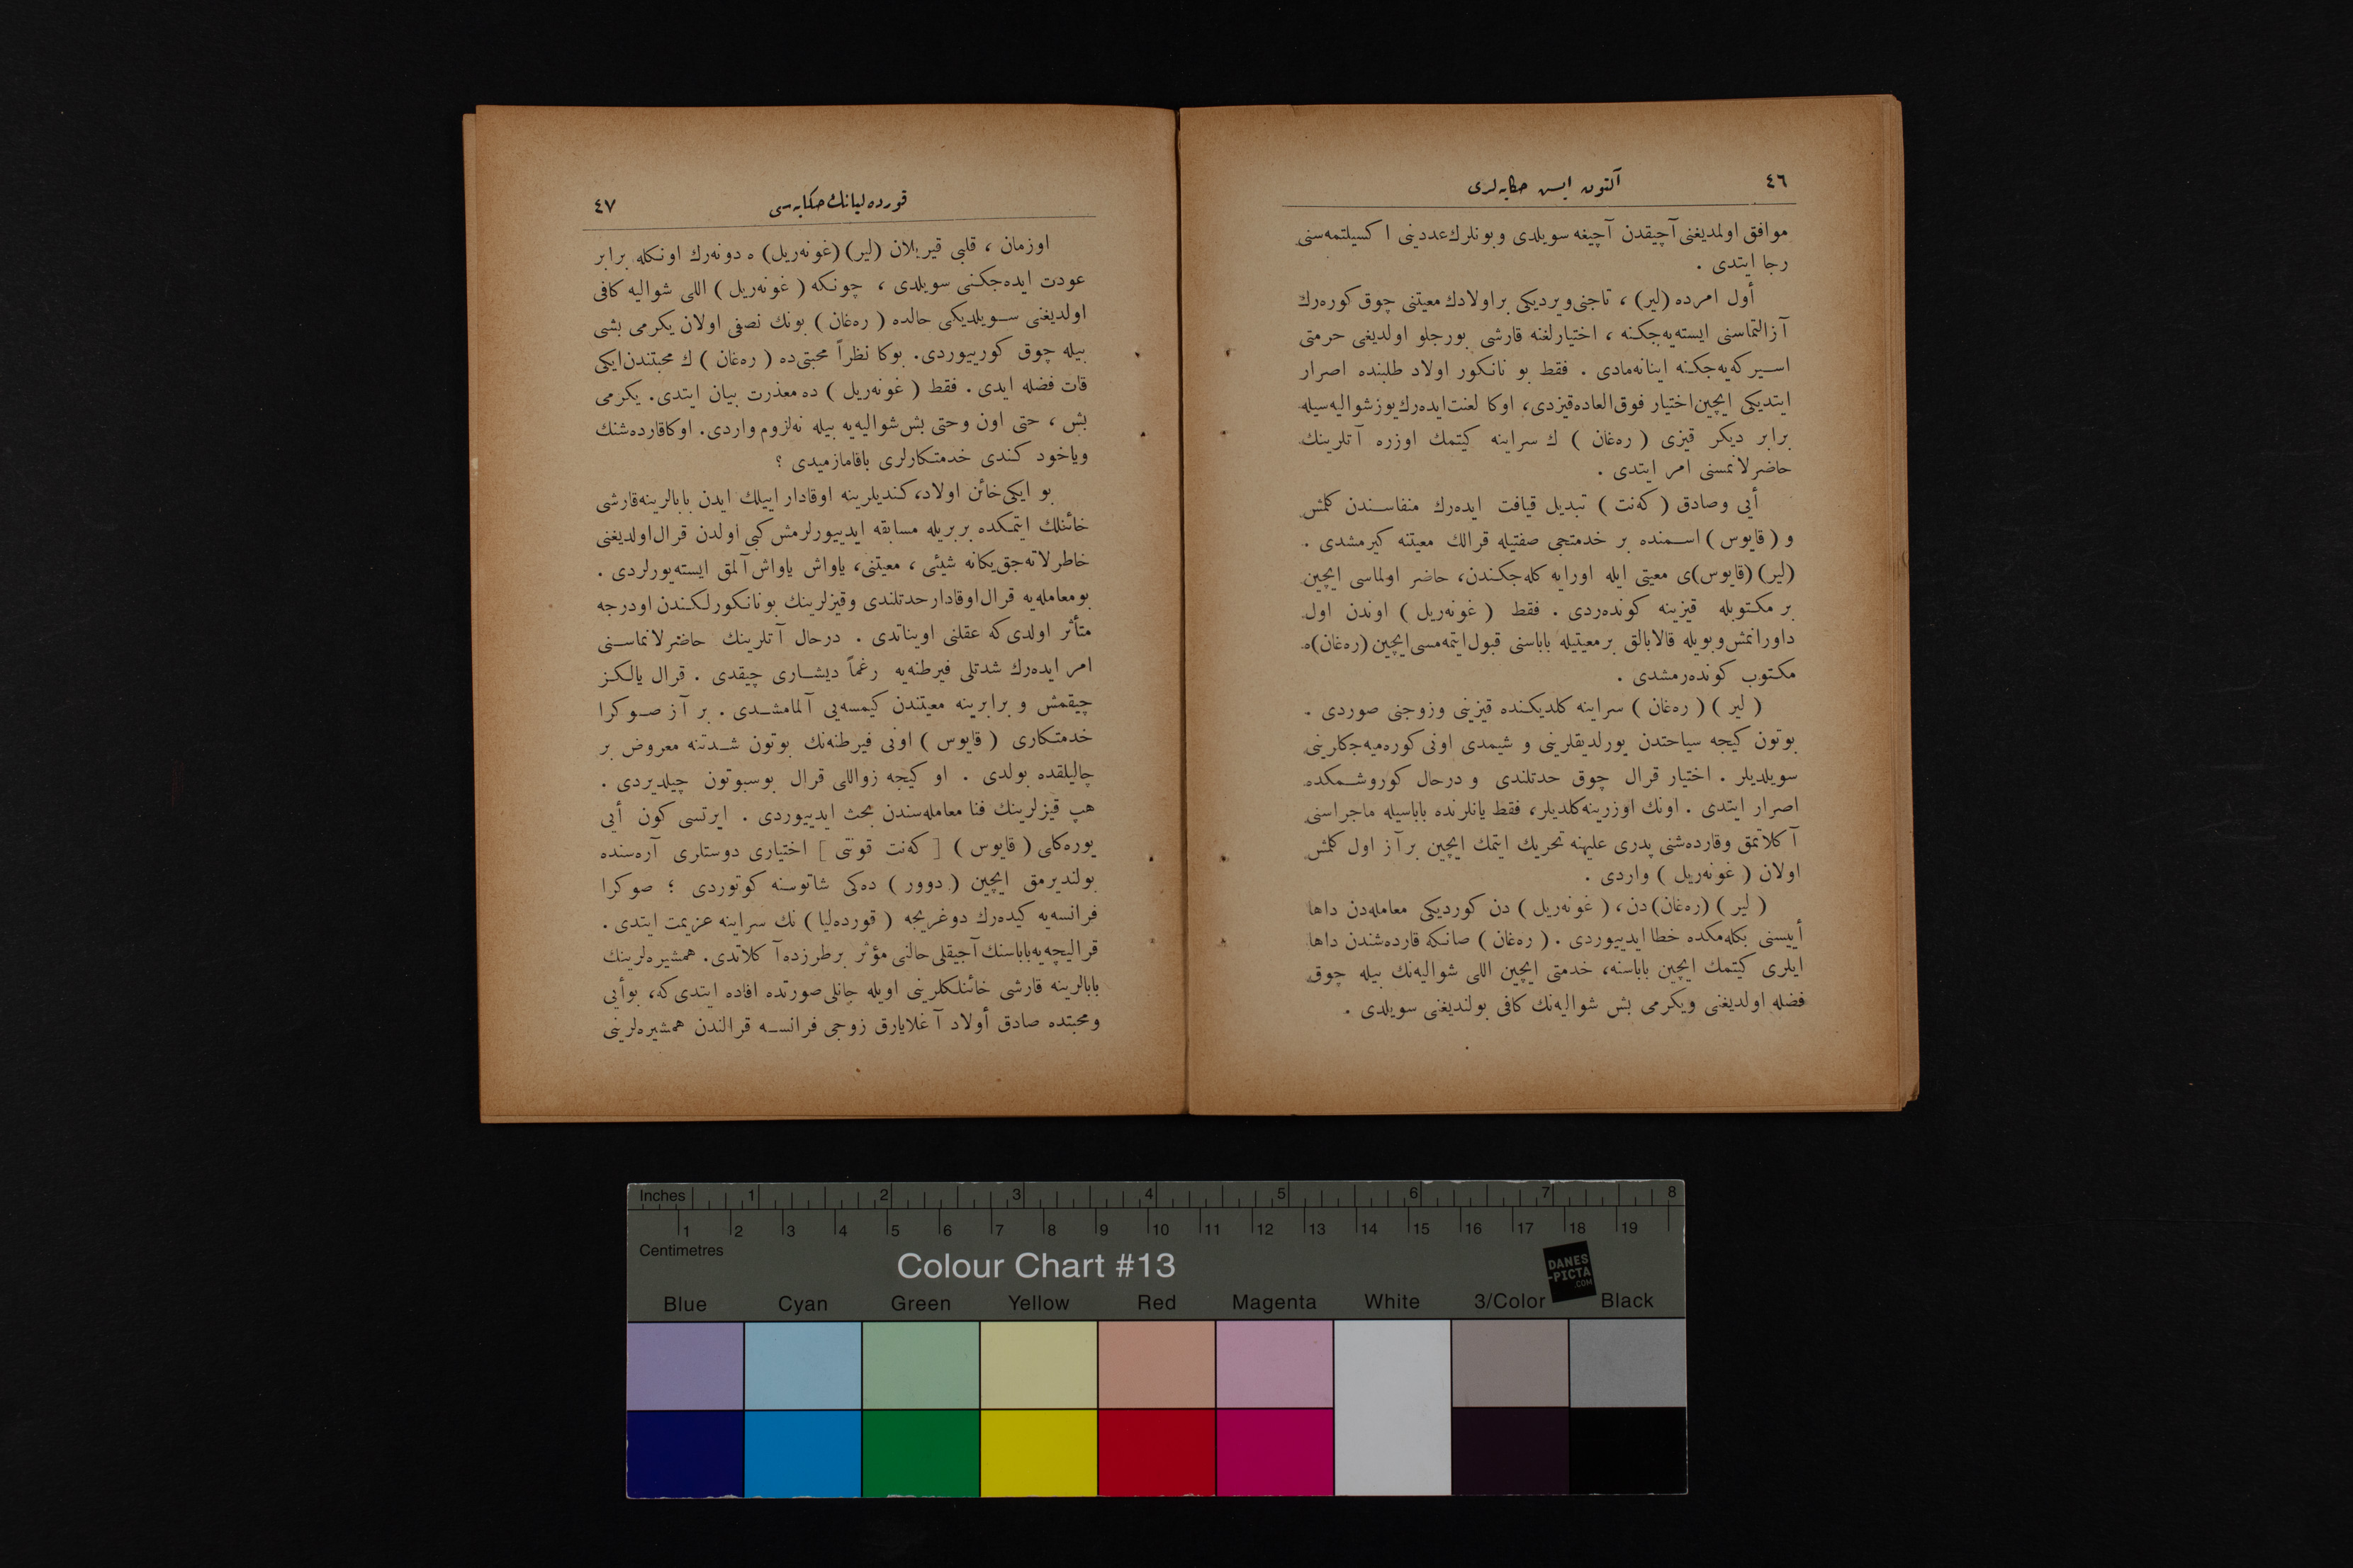 ٤٦
آلتون ایسن حکایه‌لری
موافق اولمدیغنی آچیقدن آچیغه سویلدی وبونلرك عددینی اکسیلتمه‌سنی
رجا ایتدی .
أول امرده (لیر) ، تاجنی ویردیکی براولادك معیتنی چوق کوره‌رك
آزالتماسنی ایسته‌یه‌جکنه ، اختیارلغنه قارشی بورجلو اولدیغی حرمتی
اسیرکه‌یه‌جکنه اینانه‌مادی . فقط بو نانکور اولاد طلبنده اصرار
ایتدیکی ایچین اختیار فوق‌العاده قیزدی، اوکا لعنت ایده‌رك یوز شوالیه‌سیله
برابر دیکر قیزی ( ره‌غان ) ك سراینه کیتمك اوزره آتلرینك
حاضرلانمسنی امر ایتدی .
أیی وصادق ( که‌نت ) تبدیل قیافت ایده‌رك منفاسندن کلمش
و ( قایوس ) اسمنده بر خدمتجی صفتیله قرالك معیتنه کیرمشدی .
(لیر) (قایوس)ی معیتی ایله اورایه کله‌جکندن، حاضر اولماسی ایچین
بر مکتوبله قیزینه کونده‌ردی . فقط ( غونه‌ریل ) اوندن اول
داورانمش وبویله قالابالق برمعیتیله باباسنی قبول ایتمه‌مسی ایچین (ره‌غان)ه
مکتوب کونده‌رمشدی .
( لیر ) ( ره‌غان ) سراینه کلدیکنده قیزینی وزوجنی صوردی .
بوتون کیجه سیاحتدن یورلدیقلرینی و شیمدی اونی کوره‌میه‌جکلرینی
سویلدیلر . اختیار قرال چوق حدتلندی و درحال کوروشمکده
اصرار ایتدی . اونك اوزرینه کلدیلر، فقط یانلرنده باباسیله ماجراسنی
آکلاتمق وقارده‌شنی پدری علیهنه تحریك ایتمك ایچین برآز اول کلمش
اولان ( غونه‌ریل ) واردی .
( لیر ) (ره‌غان) دن، ( غونه‌ریل ) دن کوردیکی معامله‌دن داها
أییسنی بکله‌مکده خطا ایدییوردی . ( ره‌غان ) صانکه قارده‌شندن داها
ایلری کیتمك ایچین باباسنه، خدمتی ایچین اللی شوالیه‌نك بیله چوق
فضله اولدیغنی ویکرمی بش شوالیه‌نك کافی بولندیغنی سویلدی .
قورده‌لیانك حکایه‌سی
٤٧
اوزمان ، قلبی قیریلان (لیر) (غونه‌ریل) ه دونه‌رك اونکله برابر
عودت ایده‌جکنی سویلدی ، چونکه ( غونه‌ریل ) اللی شوالیه کافی
اولدیغنی سویلدیکی حالده ( ره‌غان ) بونك نصفی اولان یکرمی بشی
بیله چوق کورییوردی. بوکا نظراً محبتی‌ده ( ره‌غان ) ك محبتندن ایکی
قات فضله ایدی . فقط ( غونه‌ریل ) ده معذرت بیان ایتدی. یکرمی
بش ، حتی اون وحتی بش شوالیه‌یه بیله نه‌لزوم واردی. اوکا قارده‌شنك
ویاخود کندی خدمتکارلری باقامازمیدی ؟
بو ایکی خائن اولاد، کندیلرینه اوقادار اییلك ایدن بابالرینه قارشی
خائنلك ایتمکده بربریله مسابقه ایدییورلرمش کبی اولدن قرال اولدیغنی
خاطرلاته‌جق یکانه شیئی ، معیتنی، یاواش یاواش آلمق ایسته‌یورلردی .
بو معامله‌یه قرال اوقادار حدتلندی وقیزلرینك بو نانکورلکندن اودرجه
متأثر اولدی که عقلنی اویناتدی . درحال آتلرینك حاضرلانماسنی
امر ایده‌رك شدتلی فیرطنه‌یه رغماً دیشاری چیقدی . قرال یالکز
چیقمش و برابرینه معیتندن کیمسه‌یی آلمامشدی . بر آز صوکرا
خدمتکاری ( قایوس ) اونی فیرطنه‌نك بوتون شدتنه معروض بر
چالیلقده بولدی . او کیجه زواللی قرال بوسبوتون چیلدیردی .
هپ قیزلرینك فنا معامله‌سندن بحث ایدییوردی . ایرتسی کون أیی
یوره‌کلی ( قایوس ) [ که‌نت قونتی ] اختیاری دوستلری آره‌سنده
بولندیرمق ایچین ( دوور ) ده‌کی شاتوسنه کوتوردی ؛ صوکرا
فرانسه‌یه کیده‌رك دوغریجه ( قورده‌لیا ) نك سراینه عزیمت ایتدی .
قرالیچه‌یه باباسنك آجیقلی حالنی مؤثر برطرزده آکلاتدی. همشیره‌لرینك
بابالرینه قارشی خائنلکلرینی اویله جانلی صورتده افاده ایتدی که، بو أیی
ومحبتده صادق أولاد آغلایارق زوجی فرانسه قرالندن همشیره‌لرینی
Inches 1 2 3 4 5 6 7 8
1 2 3 4 5 6 7 8 9 10 11 12 13 14 15 16 17 18 19
Centimetres
Colour Chart #13
DANES
-PICTA
.COM
Blue Cyan Green Yellow Red Magenta White 3/Color Black